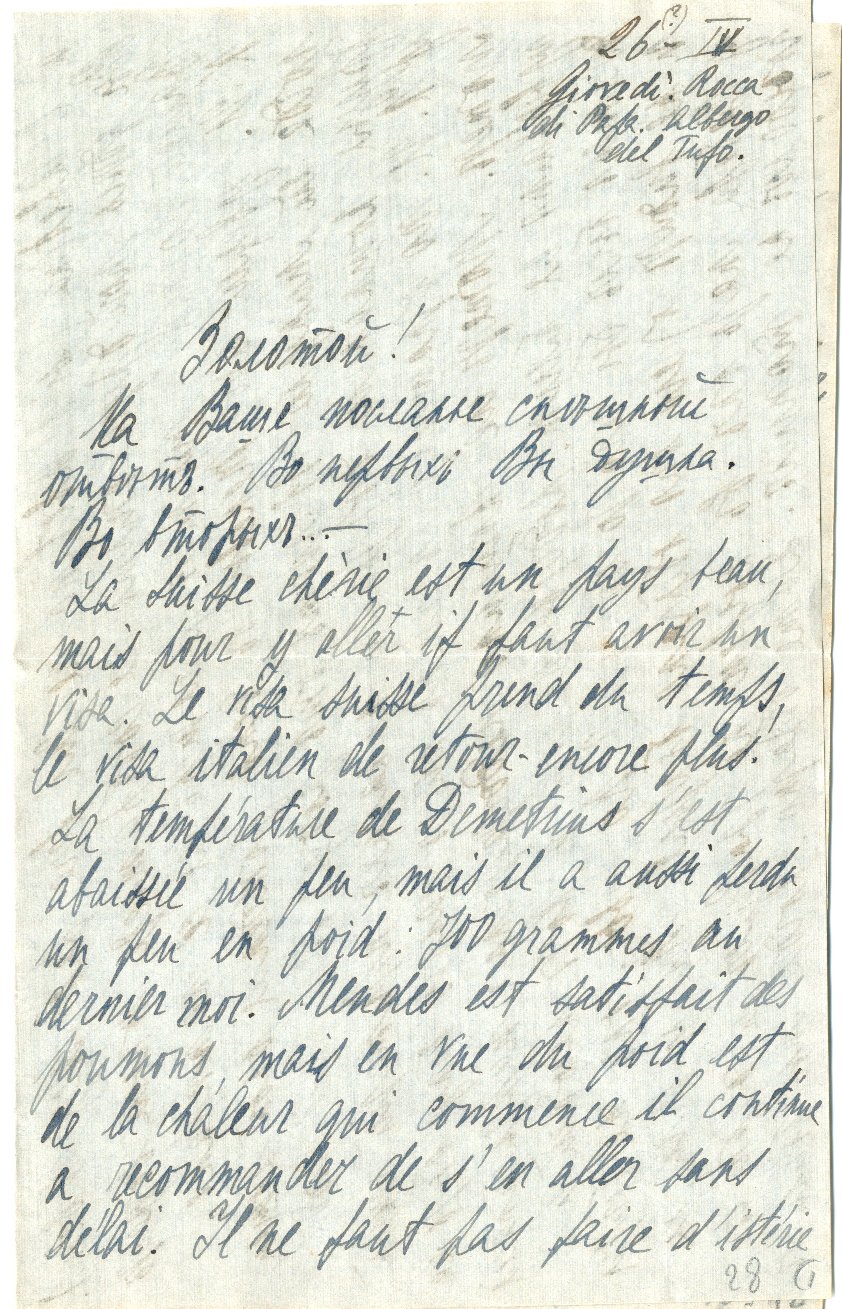 26(?) IV
Giovedì. Rocca
di Papa. Albergo
del Tufo.
Золотой!
На Ваше посланье спѣшный
отвѣтъ. Во первыхъ Вы душка.
Во вторыхъ...—
La Suisse chérie est un pays beau,
mais pour y aller il faut avoir un
visa. Le visa suisse prend du temps,
le visa italien de retour - encore plus.
La température de Demetrius s'est
abaissée un peu, mais il a aussi perdu
un peu en poid: 700 grammes au
dernier moi. Mendes est satisfait des
poumons, mais en vue du poid est
de la chaleur qui commence il continue
a recommander de s'en aller sans
délai. Il ne faut pas faire d'istérie
28